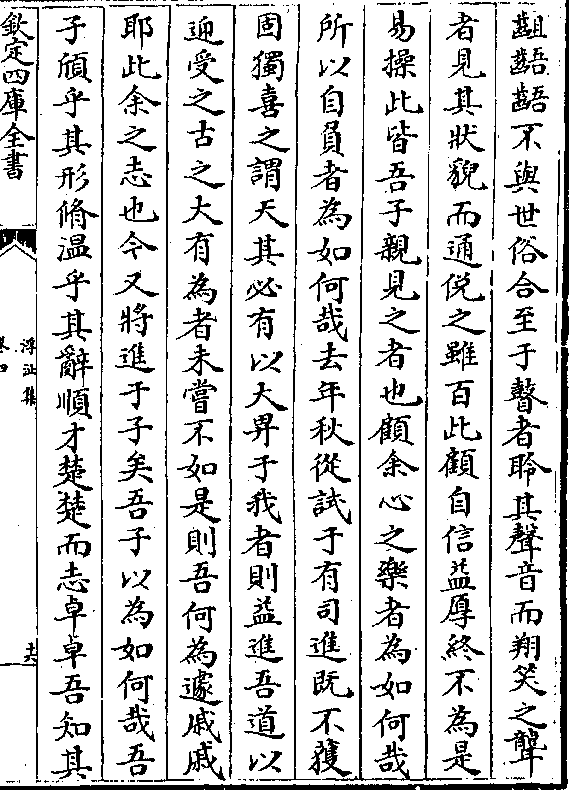 齟齬齬不與世俗合至于瞽者聆其聲音而翔笑之聾
者見其狀貌而通侻之雖百此顧自信益厚終不為是
易操此皆吾子親見之者也顧余心之樂者為如何哉
所以自負者為如何哉去年秋從試于有司進既不獲
固獨喜之謂天其必有以大畀于我者則益進吾道以
迎受之古之大有為者未嘗不如是則吾何為遽戚戚
耶此余之志也今又將進于子矣吾子以為如何哉吾
子頎乎其形脩溫乎其辭順才楚楚而志卓卓吾知其
欽定四庫全書
浮沚集
卷四
十六